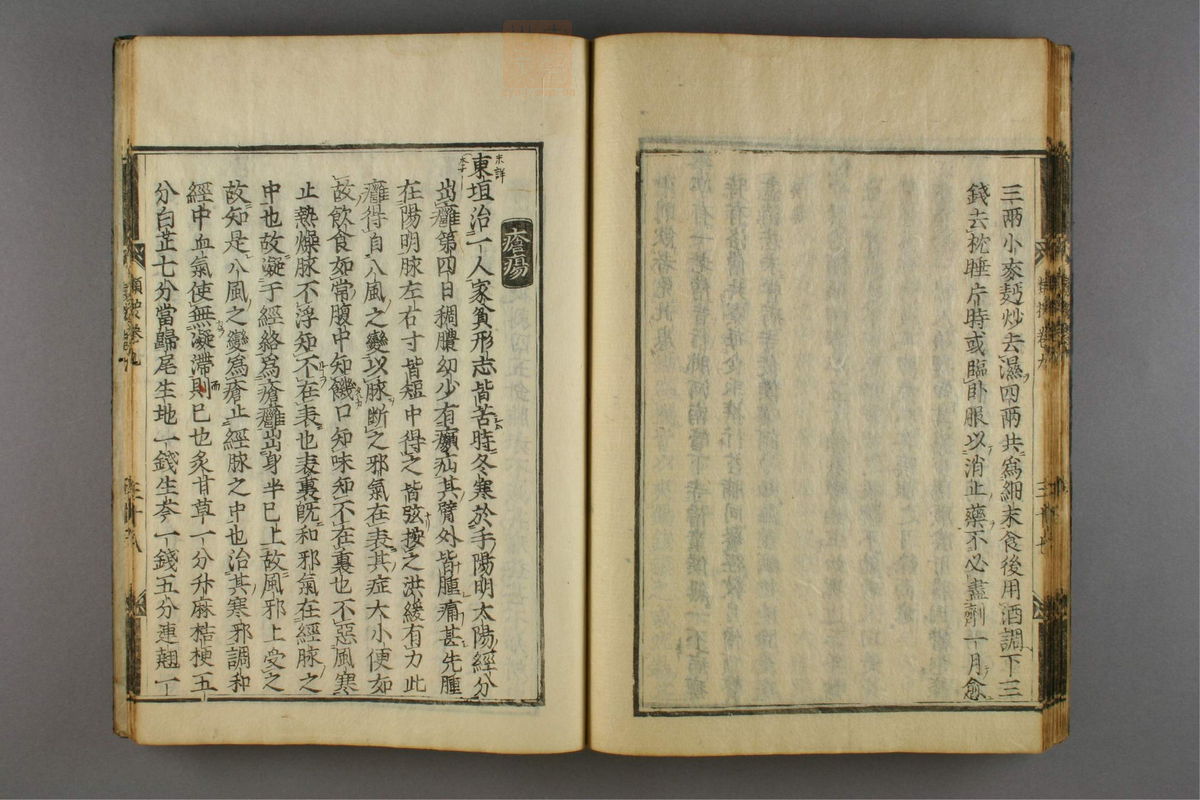 三兩小麥麪炒去濕四兩共爲細末食後用酒調下三
錢去枕睡片時或臨卧服以消止藥不必盡劑一月愈
瘡瘍
東垣治一人家貧形志皆苦時冬寒於手陽明太陽經分
出癰第四日稠膿幼少有癩疝其臂外皆腫痛甚先腫
在陽明脉左右寸皆短中得之皆弦按之洪緩有力此
癰得自八風之變以脉斷之邪氣在表其症大小便如
故飲食如常腹中知饑口知味知不在裏也不惡風寒
止熱燥脉不浮知不在表也表裏旣和邪氣在經脉之
中也故凝于經絡爲瘡癰出身半已上故風邪上受之
故知是八風之變爲瘡止經脉之中也治其寒邪調和
經中血氣使無凝滯則已也炙甘草一分升麻桔梗五
分白芷七分當歸尾生地一錢生芩一錢五分連翹一